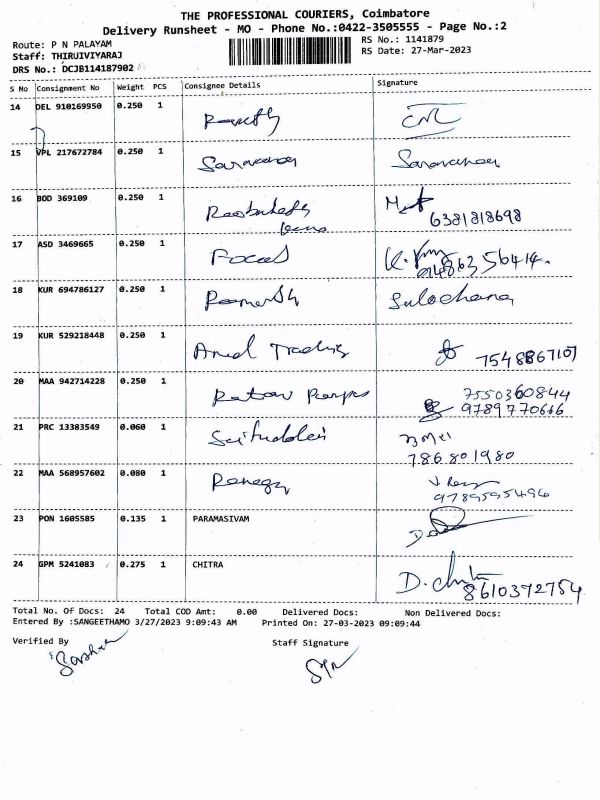 THE PROFESSIONAL COURIERS, Coimbatore
Delivery Runsheet - MO - Phone No.:0422-3505555 - Page No.:2
Route: P N PALAYAM RS No.: 1141879
Staff: THIRUIVIYARAJ RS Date: 27-Mar-2023
DRS No.: DCJB114187902
S No Consignment No Weight PCS Consignee Details Signature
14 DEL 910169950 0.250 1
15 VPL 217672784 0.250 1 Saravanan Saravanan
16 BOD 369109 0.250 1 6381818698
17 ASD 3469665 0.250 1 Focus
18 KUR 694786127 0.250 1 Sulochana
19 KUR 529218448 0.250 1 Trading 7548867107
20 MAA 942714228 0.250 1 7550360844
9789770666
21 PRC 13383549 0.060 1
786801980
22 MAA 568957602 0.080 1
9789595496
23 PON 1605585 0.135 1 PARAMASIVAM
24 GPM 5241083 0.275 1 CHITRA D. 8610372754
Total No. Of Docs: 24 Total COD Amt: 0.00 Delivered Docs: Non Delivered Docs:
Entered By :SANGEETHAMO 3/27/2023 9:09:43 AM Printed On: 27-03-2023 09:09:44
Verified By Staff Signature